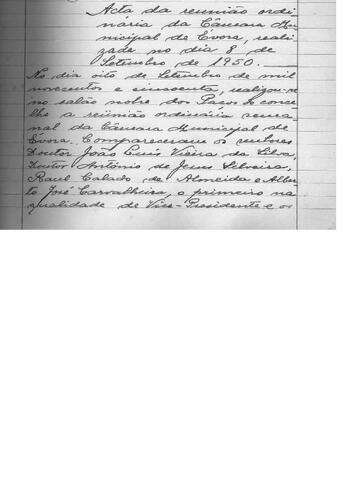 Acta da reunião ordi-
nária da Câmara Mu-
nicipal de Évora, reali-
zada no dia 8 de
Setembro de 1950.
No dia oito de Setembro de mil
novecentos e cincoenta, realizou-se
no salão nobre dos Paços do conce-
lho a reünião ordinária sema-
nal da Câmara Municipal de
Évora. Compareceram os senhores
Doutor João Luís Vieira da Silva,
Doutor António de Jesus Silveira,
Raul Calado de Almeida e Alber-
to José Carvalheira, o primeiro na
qualidade de Vice-Presidente e os